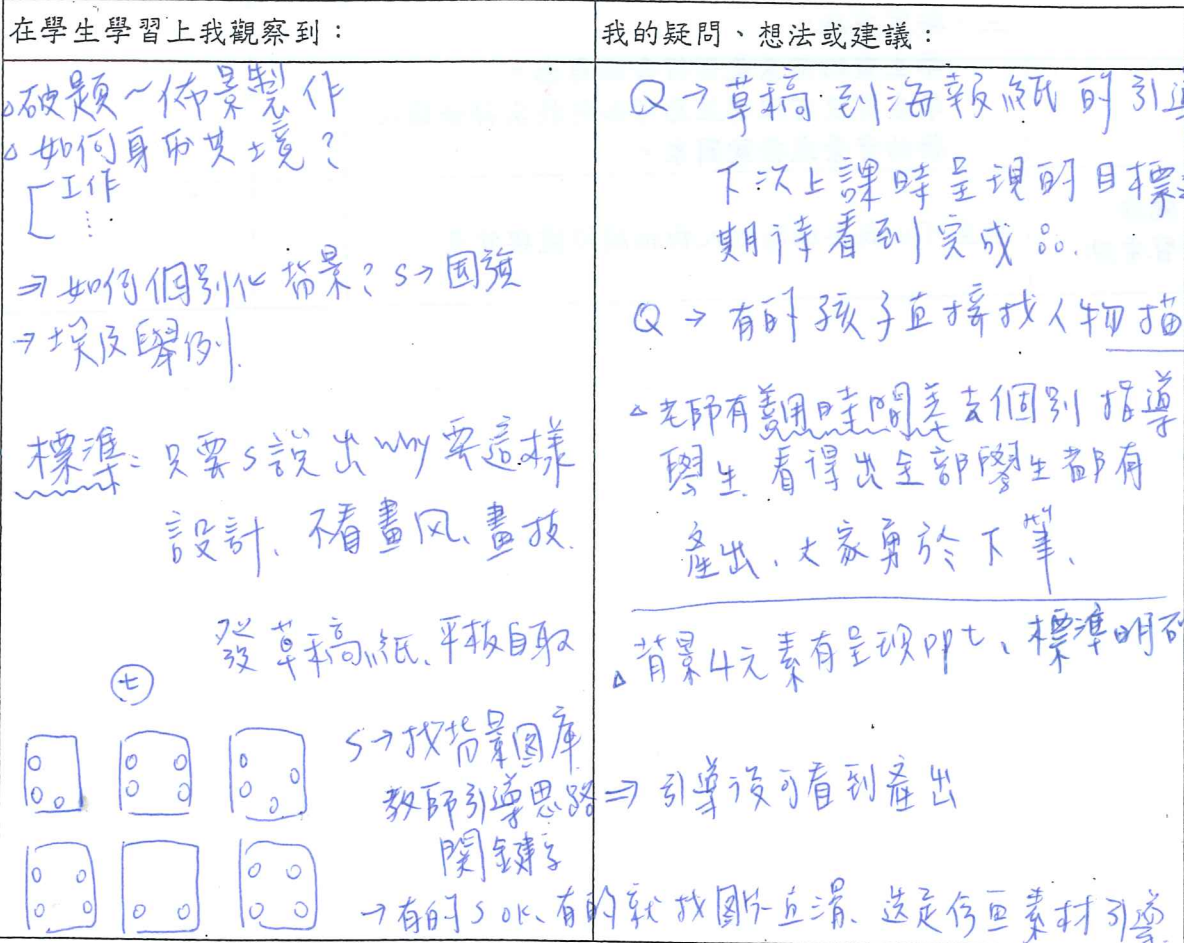 在學生學習上我觀察到：
△破題～佈景製作
△如何身歷其境？
工作
⋮
⇒如何個別化背景？S→國強
→埃及舉例.
標準：只要S說出why要這樣
設計、不看畫风、畫技.
發草稿紙、平板自取
七
S→找背景圖庫
教師引導思路
關鍵字
→有的S OK、有的就找圖片直滑、
我的疑問、想法或建議：
Q→草稿到海報紙的引導
下次上課時呈現的目標
期待看到完成
Q→有的孩子直接找人物描
△老師有善用時間差去個別指導
學生.看得出全部學生都有
產出、大家勇於下筆、
△背景4元素有呈現ppt、標準明確
⇒引導後可看到產出
素材引導